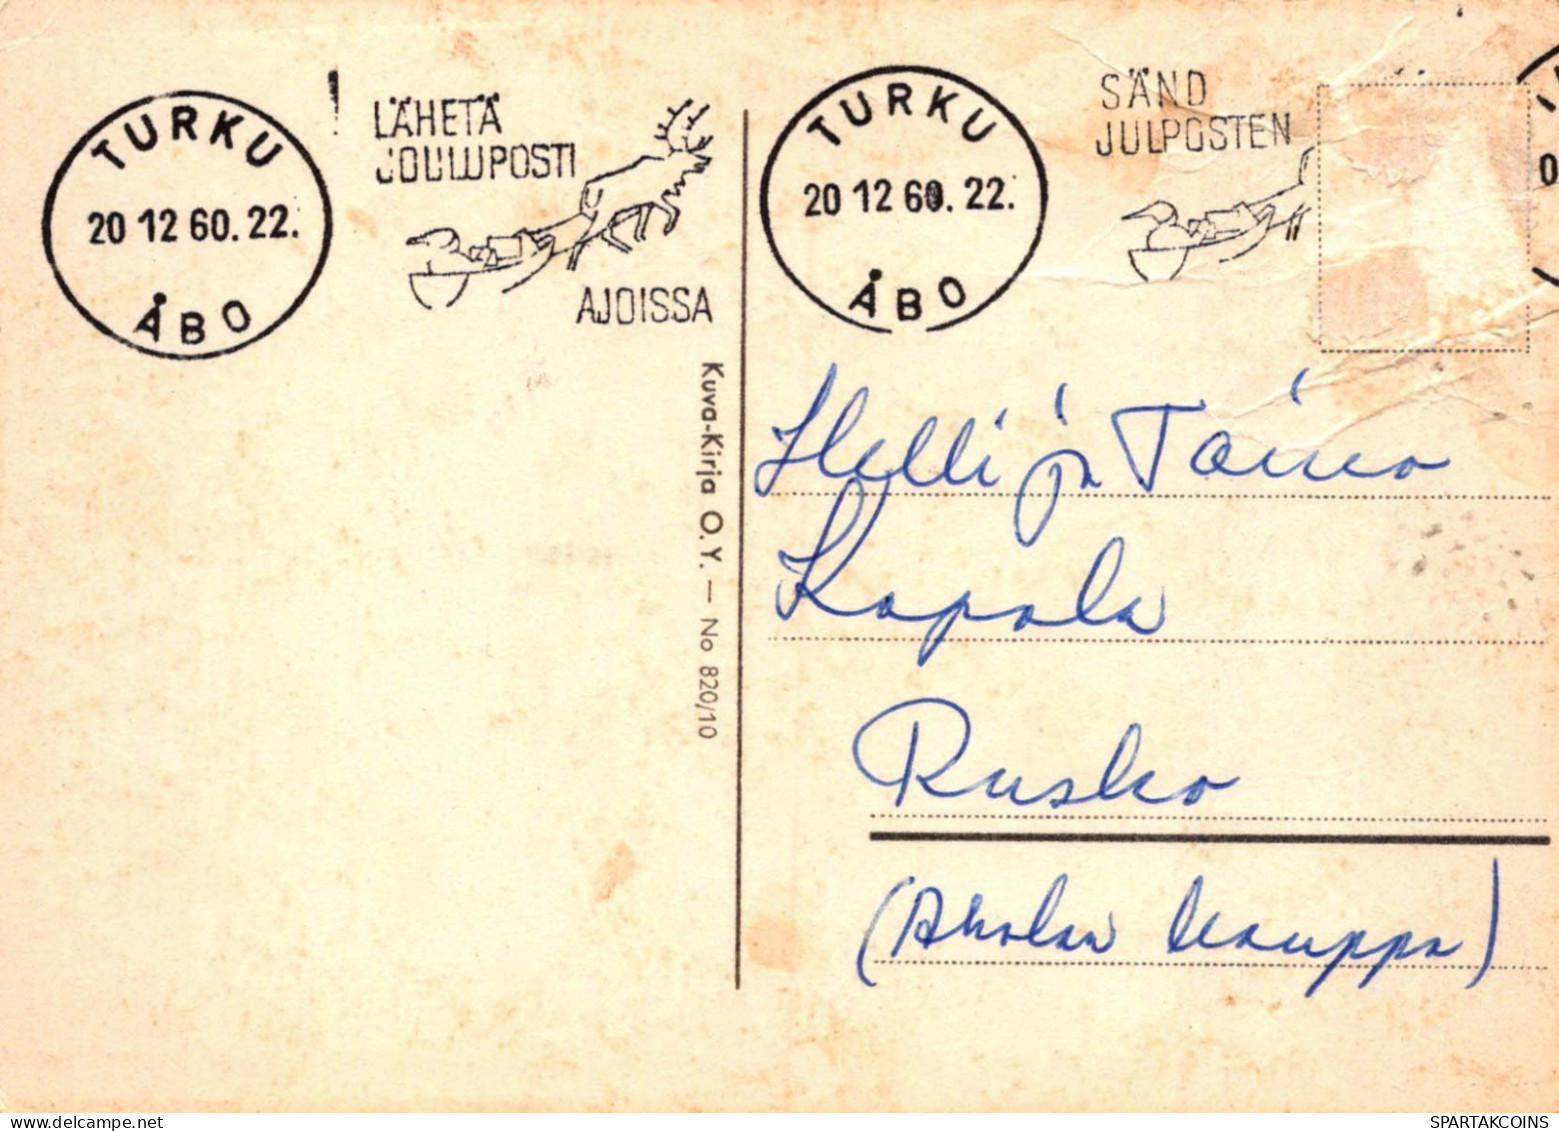 TURKU
20 12 60. 22.
ÅBO
LÄHETÄ
JOULUPOSTI
AJOISSA
TURKU
20 12 60. 22.
ÅBO
SÄND
JULPOSTEN
Kuva-Kirja O.Y. — No 820/10
Helli ja Toivo
Kopola
Rusko
(Aholan kauppa)
SPARTAKCOINS